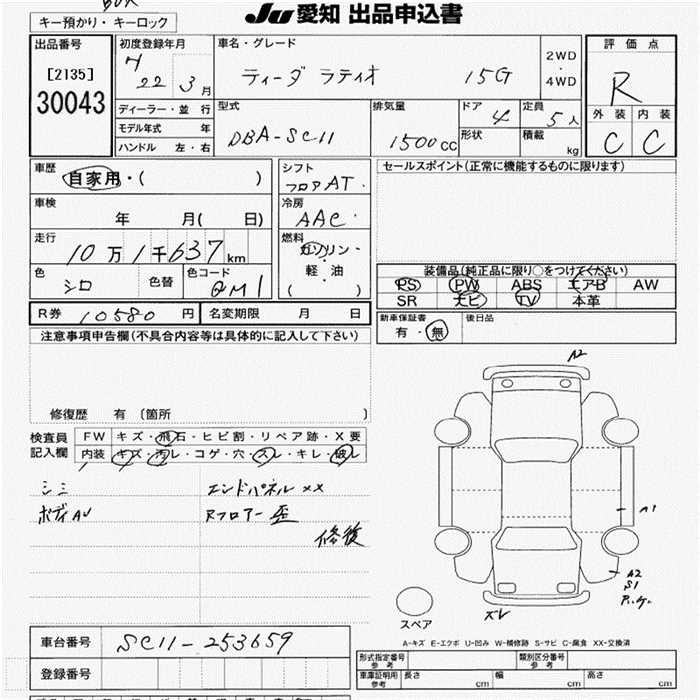 JU愛知 出品申込書
キー預かり・キーロック
出品番号
[2135]
30043
初度登録年月
H
22 3月
ディーラー・並行
モデル年式 年
ハンドル 左・右
車名・グレード
ティーダ ラティオ 15G
2WD
・
4WD
型式
DBA-SC11
排気量
1500cc
ドア
4
定員
5人
形状
積載
kg
評価点
R
外装 内装
C C
車歴
自家用・( )
車検
年 月( 日)
走行
10万1千637km
色
シロ
色替
色コード
QM1
シフト
フロアAT
冷房
AAC
燃料
ガソリン・
軽油
( )
セールスポイント(正常に機能するものに限ります)
装備品(純正品に限り○をつけてください)
PS PW ABS エアB AW
SR ナビ TV 本革
新車保証書
有・無
後日品
R券 10580円
名変期限 月 日
注意事項申告欄(不具合内容等は具体的に記入して下さい)
修復歴 有 〔箇所 〕
検査員
記入欄
FW キズ・飛石・ヒビ割・リペア跡・X要
内装 キズ・汚レ・コゲ・穴・スレ・キレ・破レ
シミ
ボディAU
エンドパネルXX
Rフロアー歪
修復
A2
A1
A2
S1
スレ
スペア
A-キズ E-エクボ U-凹み W-補修跡 S-サビ C-腐食 XX-交換済
車台番号 SC11-253659
登録番号
形式指定番号
参考
類別区分番号
参考
車庫証明用
参考
長さ cm 幅 cm 高さ cm